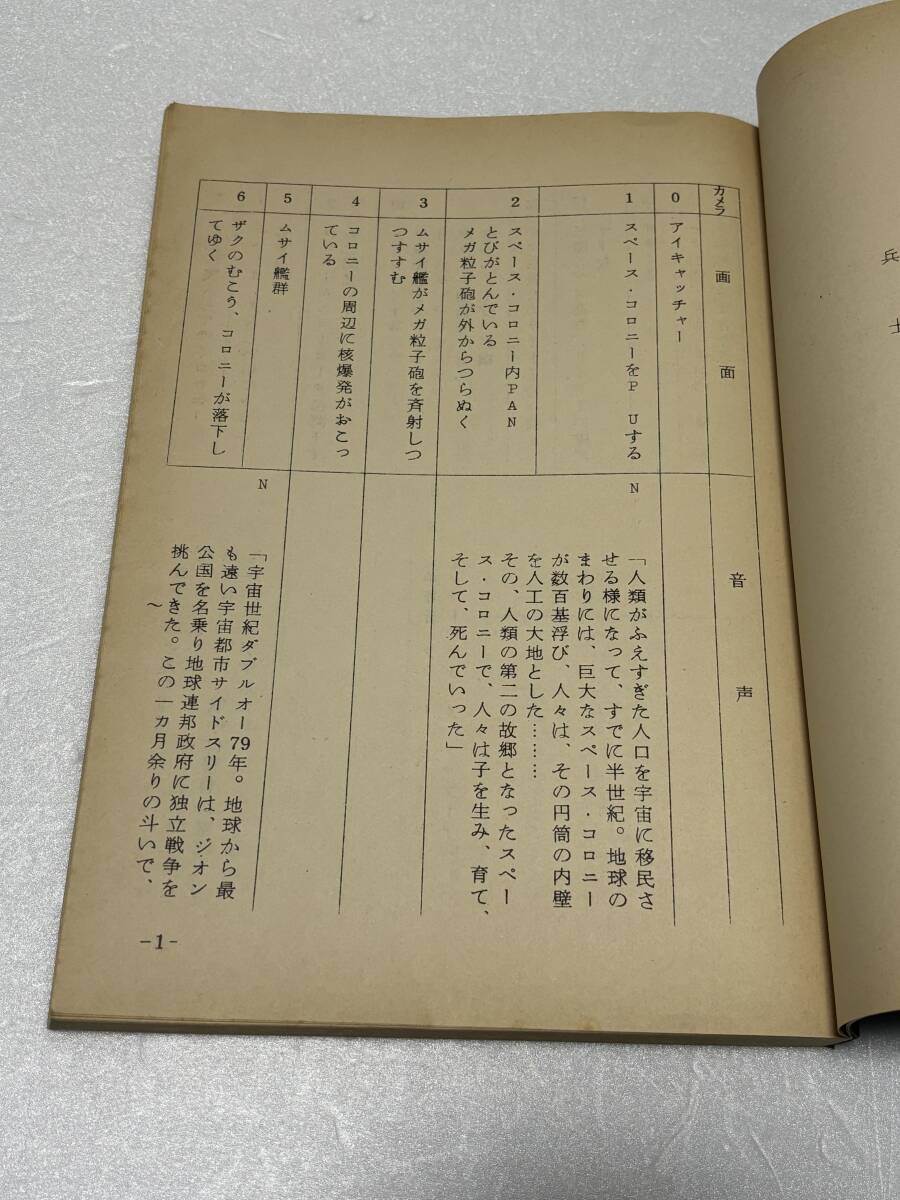 兵
士
カメラ
画面
音声
0
アイキャッチャー
1
スペース・コロニーをP Uする
N
「人類がふえすぎた人口を宇宙に移民さ
せる様になって、すでに半世紀。地球の
まわりには、巨大なスペース・コロニー
が数百基浮び、人々は、その円筒の内壁
を人工の大地とした………
その、人類の第二の故郷となったスペー
ス・コロニーで、人々は子を生み、育て、
そして、死んでいった」
2
スペース・コロニー内PAN
とびがとんでいる
メガ粒子砲が外からつらぬく
3
ムサイ艦がメガ粒子砲を斉射しつ
つすすむ
4
コロニーの周辺に核爆発がおこっ
ている
5
ムサイ艦群
6
ザクのむこう、コロニーが落下し
てゆく
N
「宇宙世紀ダブルオー79年。地球から最
も遠い宇宙都市サイドスリーは、ジオン
公国を名乗り地球連邦政府に独立戦争を
挑んできた。この一カ月余りの斗いで、
〜
-1-